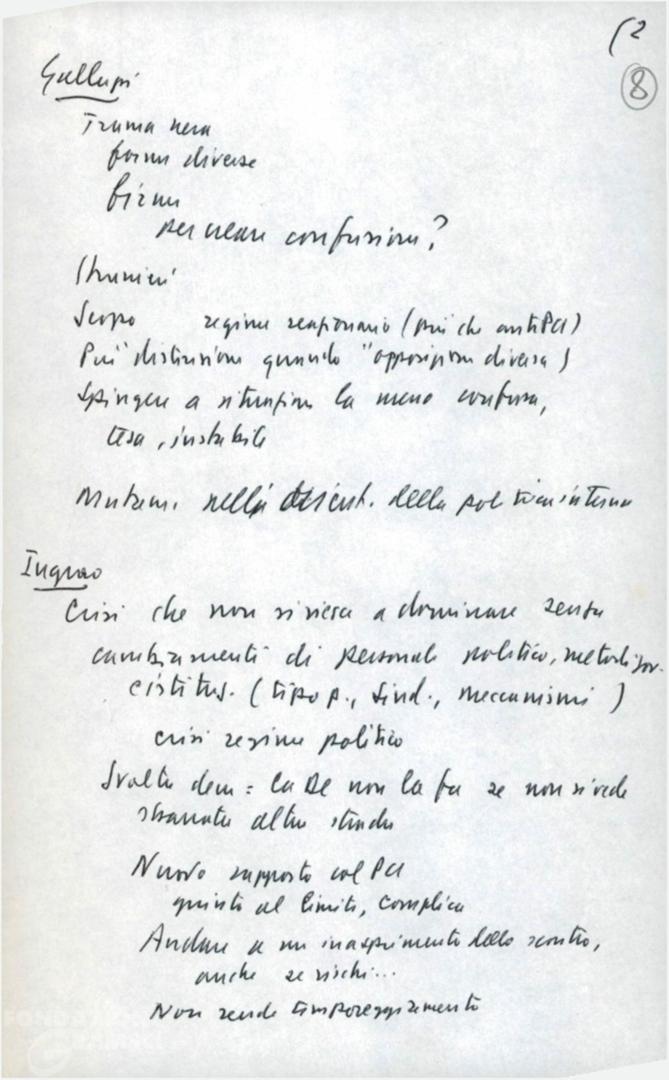 (2
8
Galluzzi
Trama nera
forme diverse
firme
per creare confusione?
Stranieri
Scopo regime reazionario (più che antiPCI)
Più distinzioni quando "opposizioni diverse)
Spingere a situazione la meno confusa,
tesa, instabile
Mutam. nella della politica interna
Ingrao
Crisi che non si riesca a dominare senza
cambiamenti di personale politico, metodi gov.
e istituz. (tipo p., sind., meccanismi)
crisi regime politico
Svolta dem = la DC non la fa se non si vede
sbarrata altra strada
Nuovo rapporto col PCI
giunto al limite, complica
Andare a un inasprimento dello scontro,
anche se rischi...
Non rende temporeggiamento